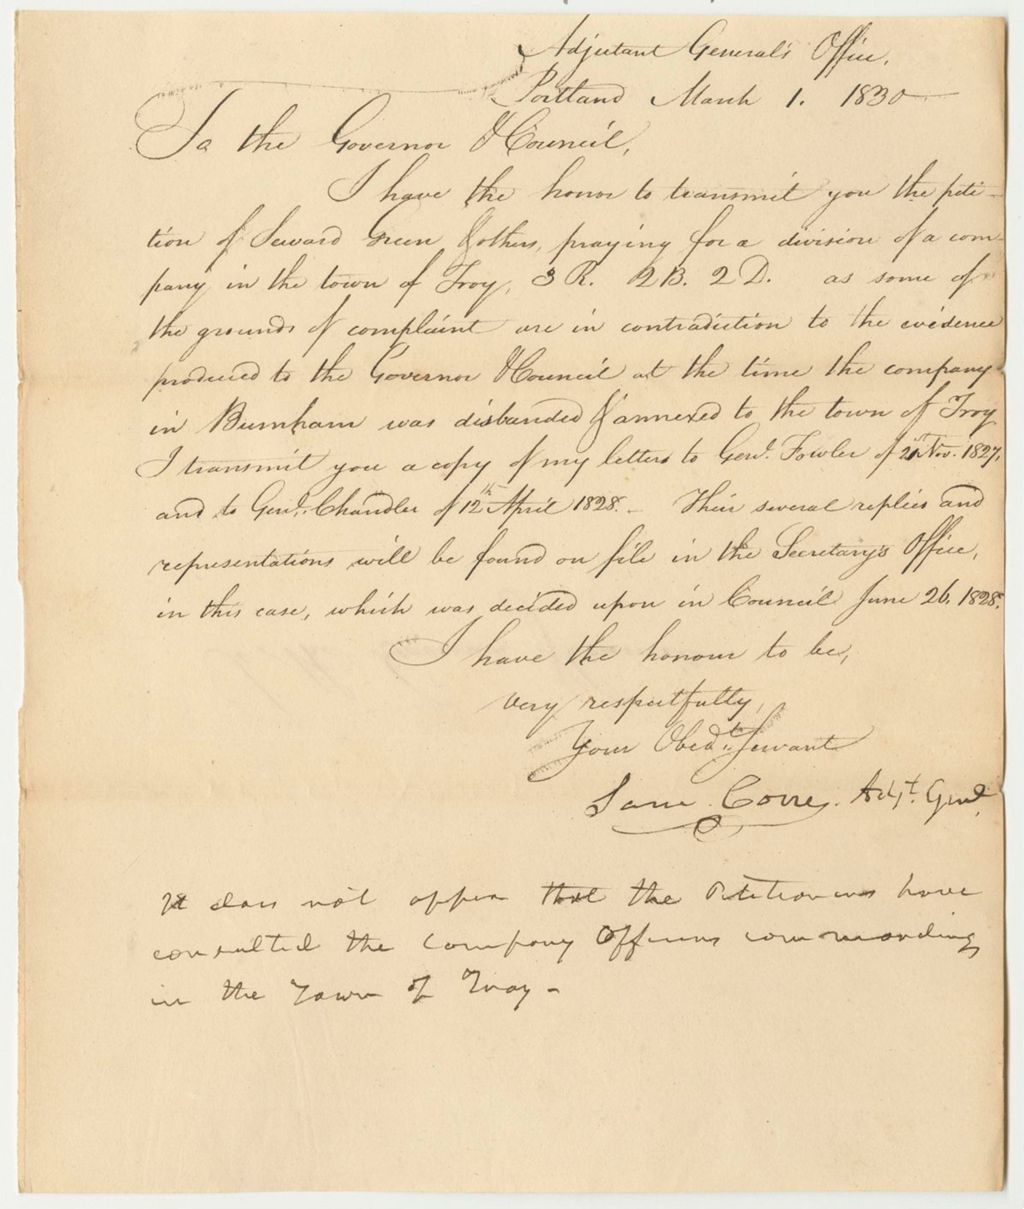 Adjutant General's Office,
Portland March 1. 1830
To the Governor & Council,
I have the honor to transmit you the peti-
tion of Seward Green & others, praying for a division of a com-
pany in the town of Troy, 3 R. 2 B. 2 D. as some of
the grounds of complaint are in contradiction to the evidence
produced to the Governor & Council at the time the company
in Burnham was disbanded & annexed to the town of Troy
I transmit you a copy of my letters to Genl. Fowler of 21st Nov. 1827,
and to Genl. Chandler of 12th April 1828. - Their several replies and
representations will be found on file in the Secretary's Office,
in this case, which was decided upon in Council June 26, 1828.
I have the honour to be,
very respectfully,
Your Obedt. Servant
Saml. Cony. Adjt. Genl.
It does not appear that the Petitioners have
consulted the Company Officers commanding
in the Town of Troy -